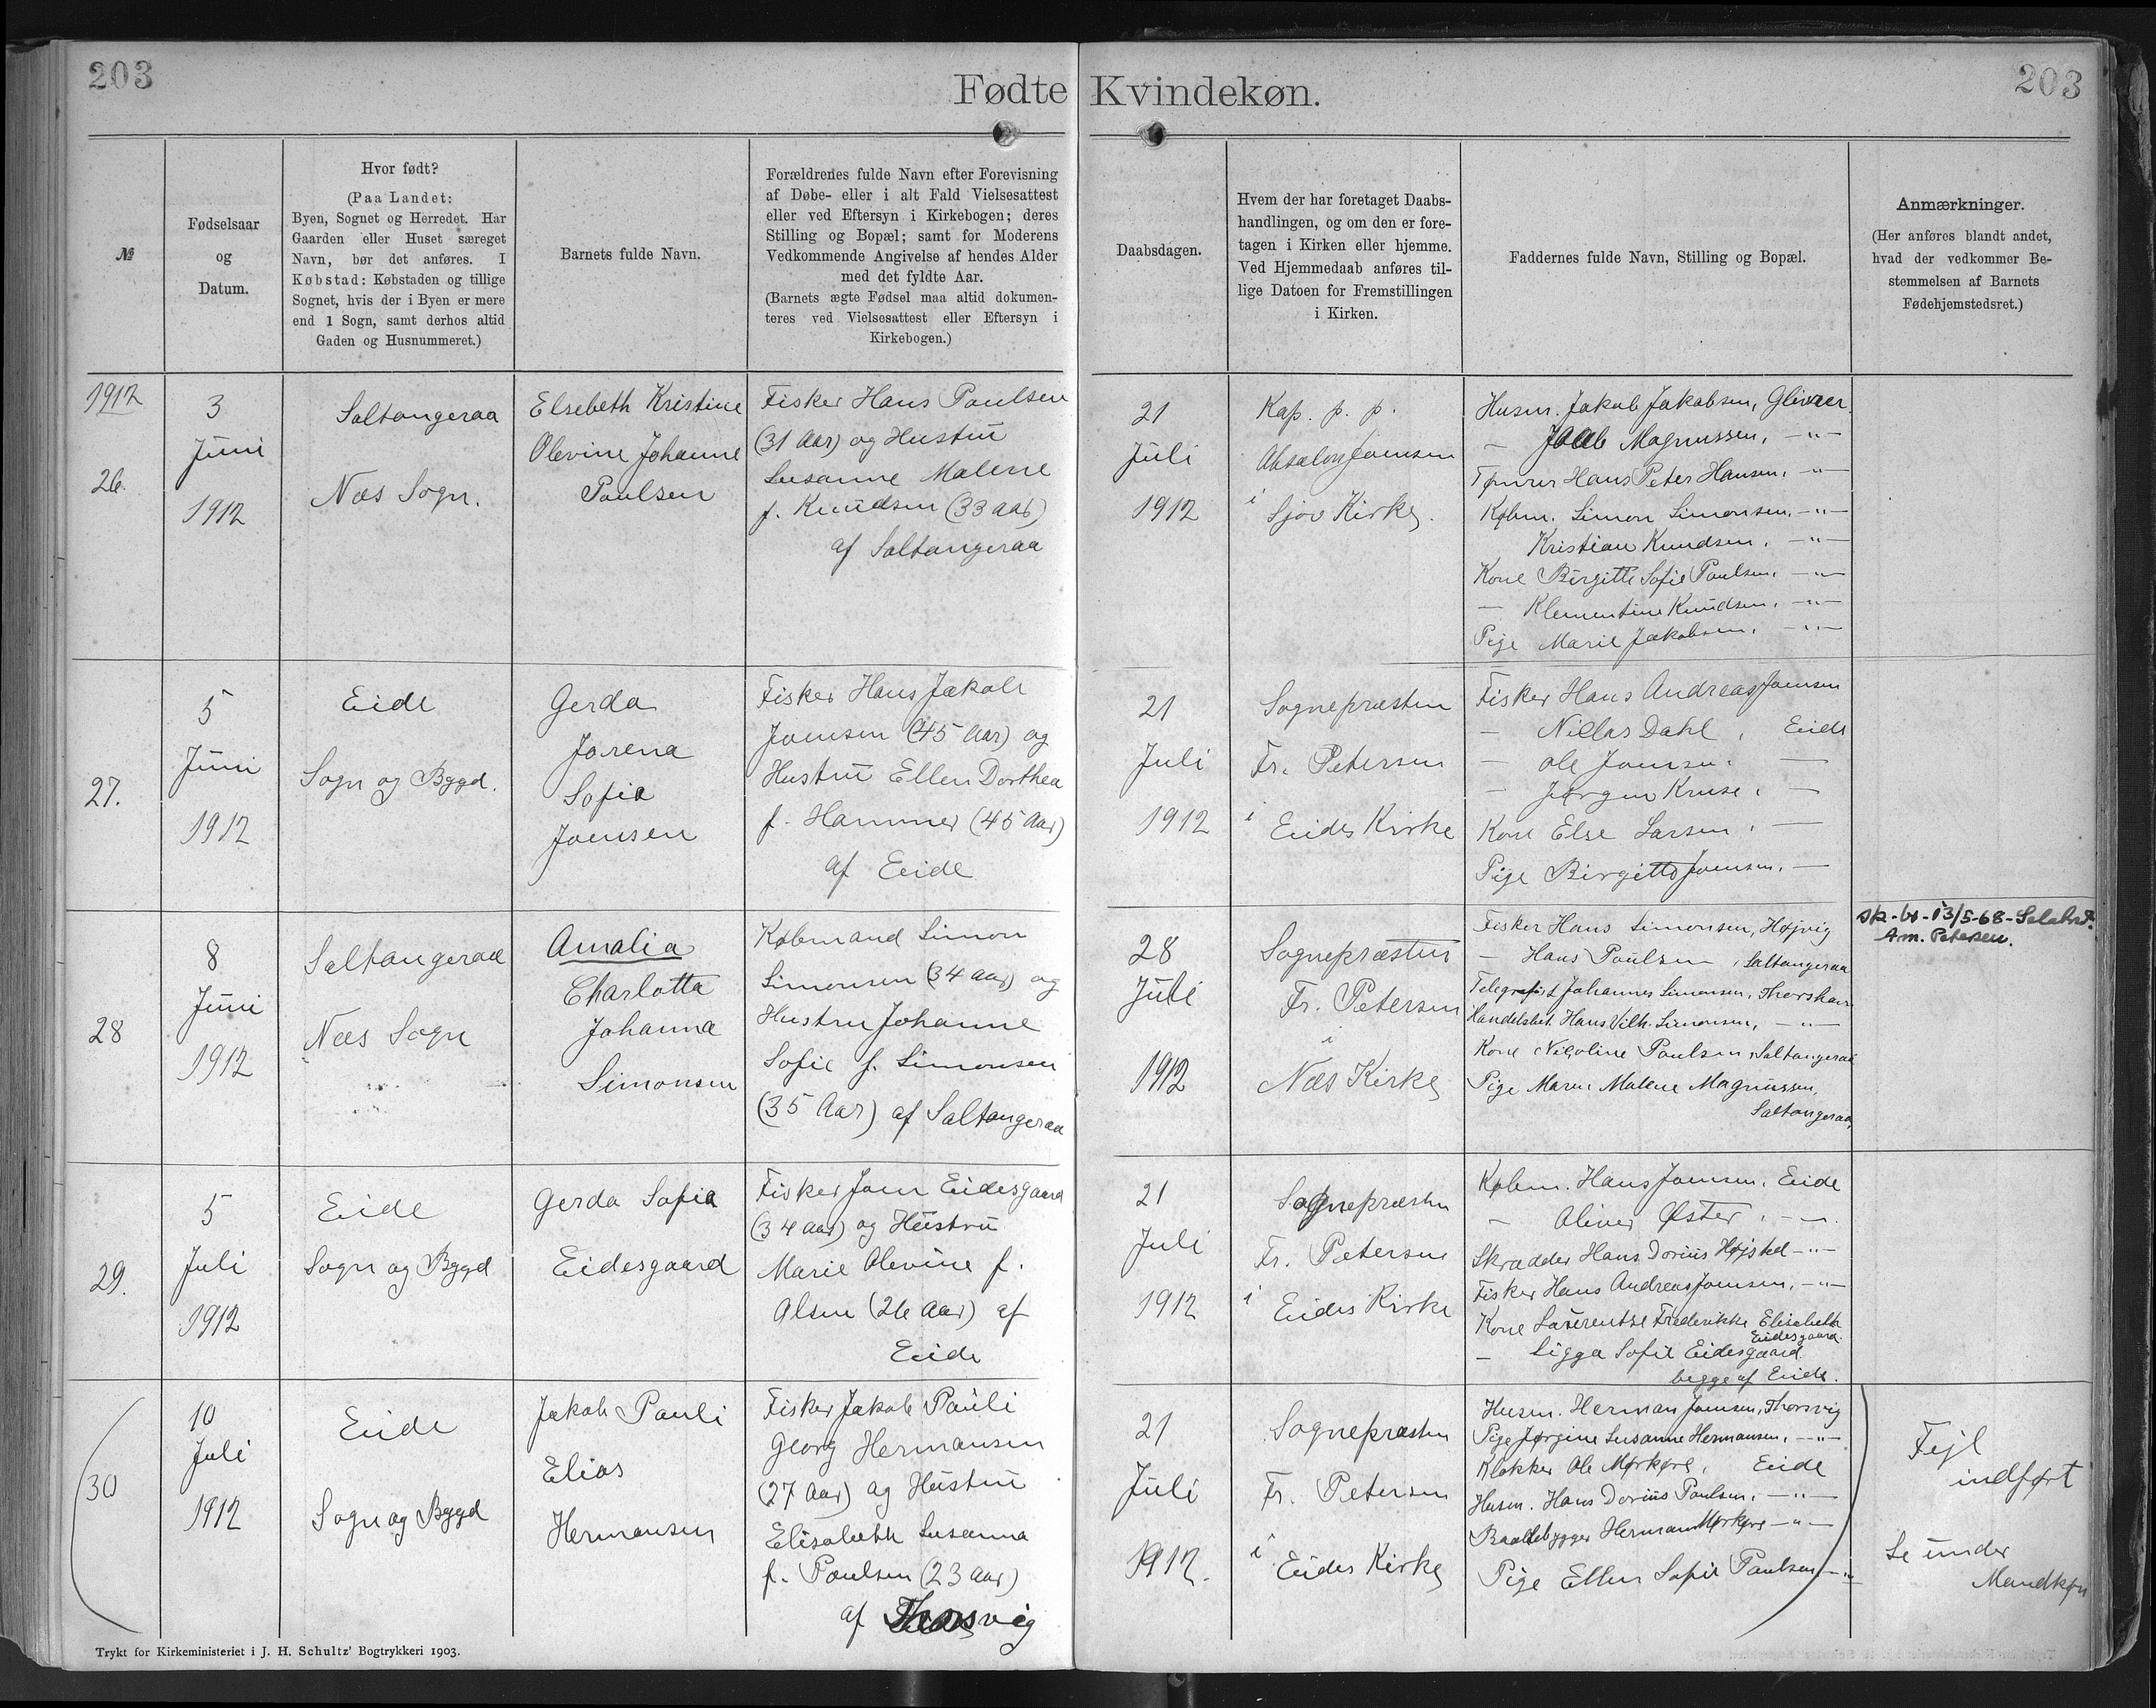 203
Fødte Kvindekøn.
203
№
Fødselsaar
og
Datum.
Hvor født?
(Paa Landet:
Byen, Sognet og Herredet. Har
Gaarden eller Huset særeget
Navn, bør det anføres. I
Købstad: Købstaden og tillige
Sognet, hvis der i Byen er mere
end 1 Sogn, samt derhos altid
Gaden og Husnummeret.)
Barnets fulde Navn.
Forældrenes fulde Navn efter Forevisning
af Døbe- eller i alt Fald Vielsesattest
eller ved Eftersyn i Kirkebogen; deres
Stilling og Bopæl; samt for Moderens
Vedkommende Angivelse af hendes Alder
med det fyldte Aar.
(Barnets ægte Fødsel maa altid dokumen-
teres ved Vielsesattest eller Eftersyn i
Kirkebogen.)
Daabsdagen.
Hvem der har foretaget Daabs-
handlingen, og om den er fore-
tagen i Kirken eller hjemme.
Ved Hjemmedaab anføres til-
lige Datoen for Fremstillingen
i Kirken.
Faddernes fulde Navn, Stilling og Bopæl.
Anmærkninger.
(Her anføres blandt andet,
hvad der vedkommer Be-
stemmelsen af Barnets
Fødehjemstedsret.)
1912
26.
3
Juni
1912
Saltangeraa
Næs Sogn.
Elsebeth Kristine
Olevine Johanne
Poulsen
Fisker Hans Poulsen
(31 Aar) og Hustru
Susanne Malene
f. Knudsen (33 Aar)
af Saltangeraa
21
Juli
1912
Kap. p. p.
Absalon Joensen
i Sjov Kirke.
Husm. Jakob Jakobsen, Glivrer.
— Jacob Magnussen, —"—
Tømrer Hans Peter Hansen, —"—
Købm. Simon Simonsen, —"—
Kristian Knudsen, —"—
Kone Birgitte Sofie Poulsen, —"—
— Klementine Knudsen, —"—
Pige Marie Jakobsen, —"—
27.
5
Juni
1912
Eide
Sogn og Bygd.
Gerda
Jorena
Sofia
Joensen
Fisker Hans Jakob
Joensen (45 Aar) og
Hustru Ellen Dorthea
f. Hammer (45 Aar)
af Eide
21
Juli
1912
Sognepræsten
Fr. Petersen
i Eides Kirke
Fisker Hans Andreas Joensen
— Niclas Dahl, Eide
— Ole Joensen, —
— Jørgen Kruse, —
Kone Else Larsen, —
Pige Birgitte Joensen, —
28
8
Juni
1912
Saltangeraa
Næs Sogn
Amalia
Charlotta
Johanna
Simonsen
Købmand Simon
Simonsen (34 Aar) og
Hustru Johanne
Sofie f. Simonsen
(35 Aar) af Saltangeraa
28
Juli
1912
Sognepræsten
Fr. Petersen
i
Næs Kirke
Fisker Hans Simonsen, Højvig
— Hans Poulsen, Saltangeraa
Telegrafist Johannes Simonsen, Thorshavn
Handelsbet. Hans Vilh. Simonsen, —"—
Kone Nicoline Poulsen, Saltangeraa
Pige Maren Malene Magnussen,
Saltangeraa,
13/5-68-
Am. Petersen.
29.
5
Juli
1912
Eide
Sogn og Bygd
Gerda Sofia
Eidesgaard
Fisker Joen Eidesgaard
(34 Aar) og Hustru
Marie Olevine f.
Olsen (26 Aar) af
Eide
21
Juli
1912
Sognepræsten
Fr. Petersen
i Eides Kirke
Købm. Hans Joensen, Eide
— Oliver Øster, —"—
Skrædder Hans Dorius Højsted —"—
Fisker Hans Andreas Joensen, —"—
Kone Laurentse Frederikke Elisabeth
Eidesgaard.
— Sigga Sofie Eidesgaard
begge af Eide.
30
10
Juli
1912
Eide
Sogn og Bygd
Jakob Pauli
Elias
Hermansen
Fisker Jakob Pauli
Georg Hermansen
(27 Aar) og Hustru
Elisabeth Susanna
f. Poulsen (23 Aar)
af Thorsvig
21
Juli
1912.
Sognepræsten
Fr. Petersen
i Eides Kirke
Husm. Herman Joensen, Thorsvig
Pige Jørgine Susanne Hermansen, —"—
Klokker Ole Mørkøre, Eide
Husm. Hans Dorius Poulsen, —"—
Baadebygger Herman Mørkøre —"—
Pige Ellen Sofie Poulsen, —"—
Fejl
indført
Se under
Mandkøn
Trykt for Kirkeministeriet i J. H. Schultz' Bogtrykkeri 1903.